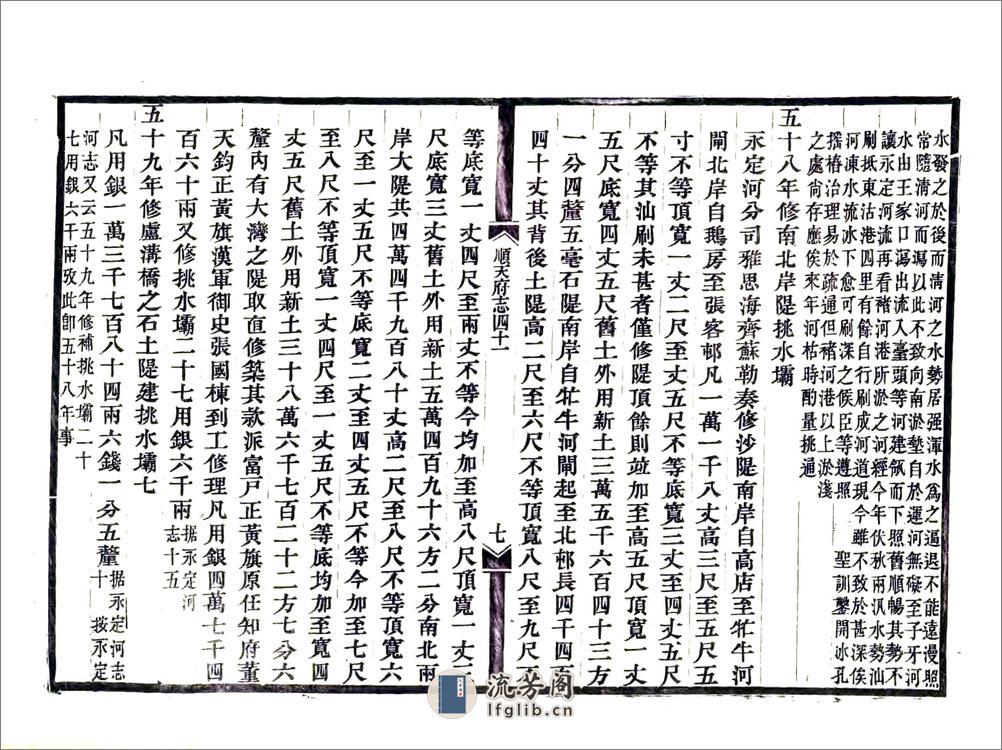 水發之於後而清河之水勢居强渾水爲之逼退不能遠漫照
常隨清河而瀉以此不致向南淤墊自於運河無礙至子牙河
水由王家口瀉出流入臺頭等河建瓴而下照舊順暢其勢不
讓永定河流再看褚河港所淤之河經今年伏秋兩汛水勢汕
刷抵東沽港四里有餘自行刷成河道現今雖不致於甚深俟
河凍水流冰下愈可刷深之候臣等遵照 聖訓鑿開冰孔
搖樁治理易於疏通但褚河港以上淤淺
之處尙存應俟來年河枯時酌量挑通
五十八年修南北岸隄挑水壩
永定河分司雅思海齊蘇勒奏修沙隄南岸自高店至牤牛河
閘北岸自鵝房至張客邨凡一萬一千八丈高三尺至五尺五
寸不等頂寬一丈二尺至丈五尺不等底寬二丈至四丈五尺
不等其汕刷未甚者僅修隄頂餘則竝加至高五尺頂寬一丈
五尺底寬四丈五尺舊土外用新土三萬五千六百四十三方
一分四釐五毫石隄南岸自牤牛河閘起至北邨長四千四百
四十丈其背後土隄高二尺至六尺不等頂寬八尺至九尺不
順天府志四十一
七
等底寬一丈四尺至兩丈不等今均加至高八尺頂寬一丈二
尺底寬三丈舊土外用新土五萬四百九十六方二分南北兩
岸大隄共四萬四千九百八十丈高二尺至八尺不等頂寬六
尺至一丈五尺不等底寬二丈至四丈五尺不等今加至七尺
至八尺不等頂寬一丈四尺至一丈五尺不等底均加至寬四
丈五尺舊土外用新土三十八萬六千七百二十二方七分六
釐內有大灣之隄取直修築其款派富戸正黃旗原任知府董
天鈞正黃旗漢軍御史張國棟到工修理凡用銀四萬七千四
百六十兩又修挑水壩二十七用銀六千兩據永定河志十五
五十九年修盧溝橋之石土隄建挑水壩七
凡用銀一萬三千七百八十四兩六錢一分五釐據永定河志十 按永定
河志又云五十九年修補挑水壩二十
七用銀六千兩攷此卽五十八年事
流芳阁
lfglib.cn